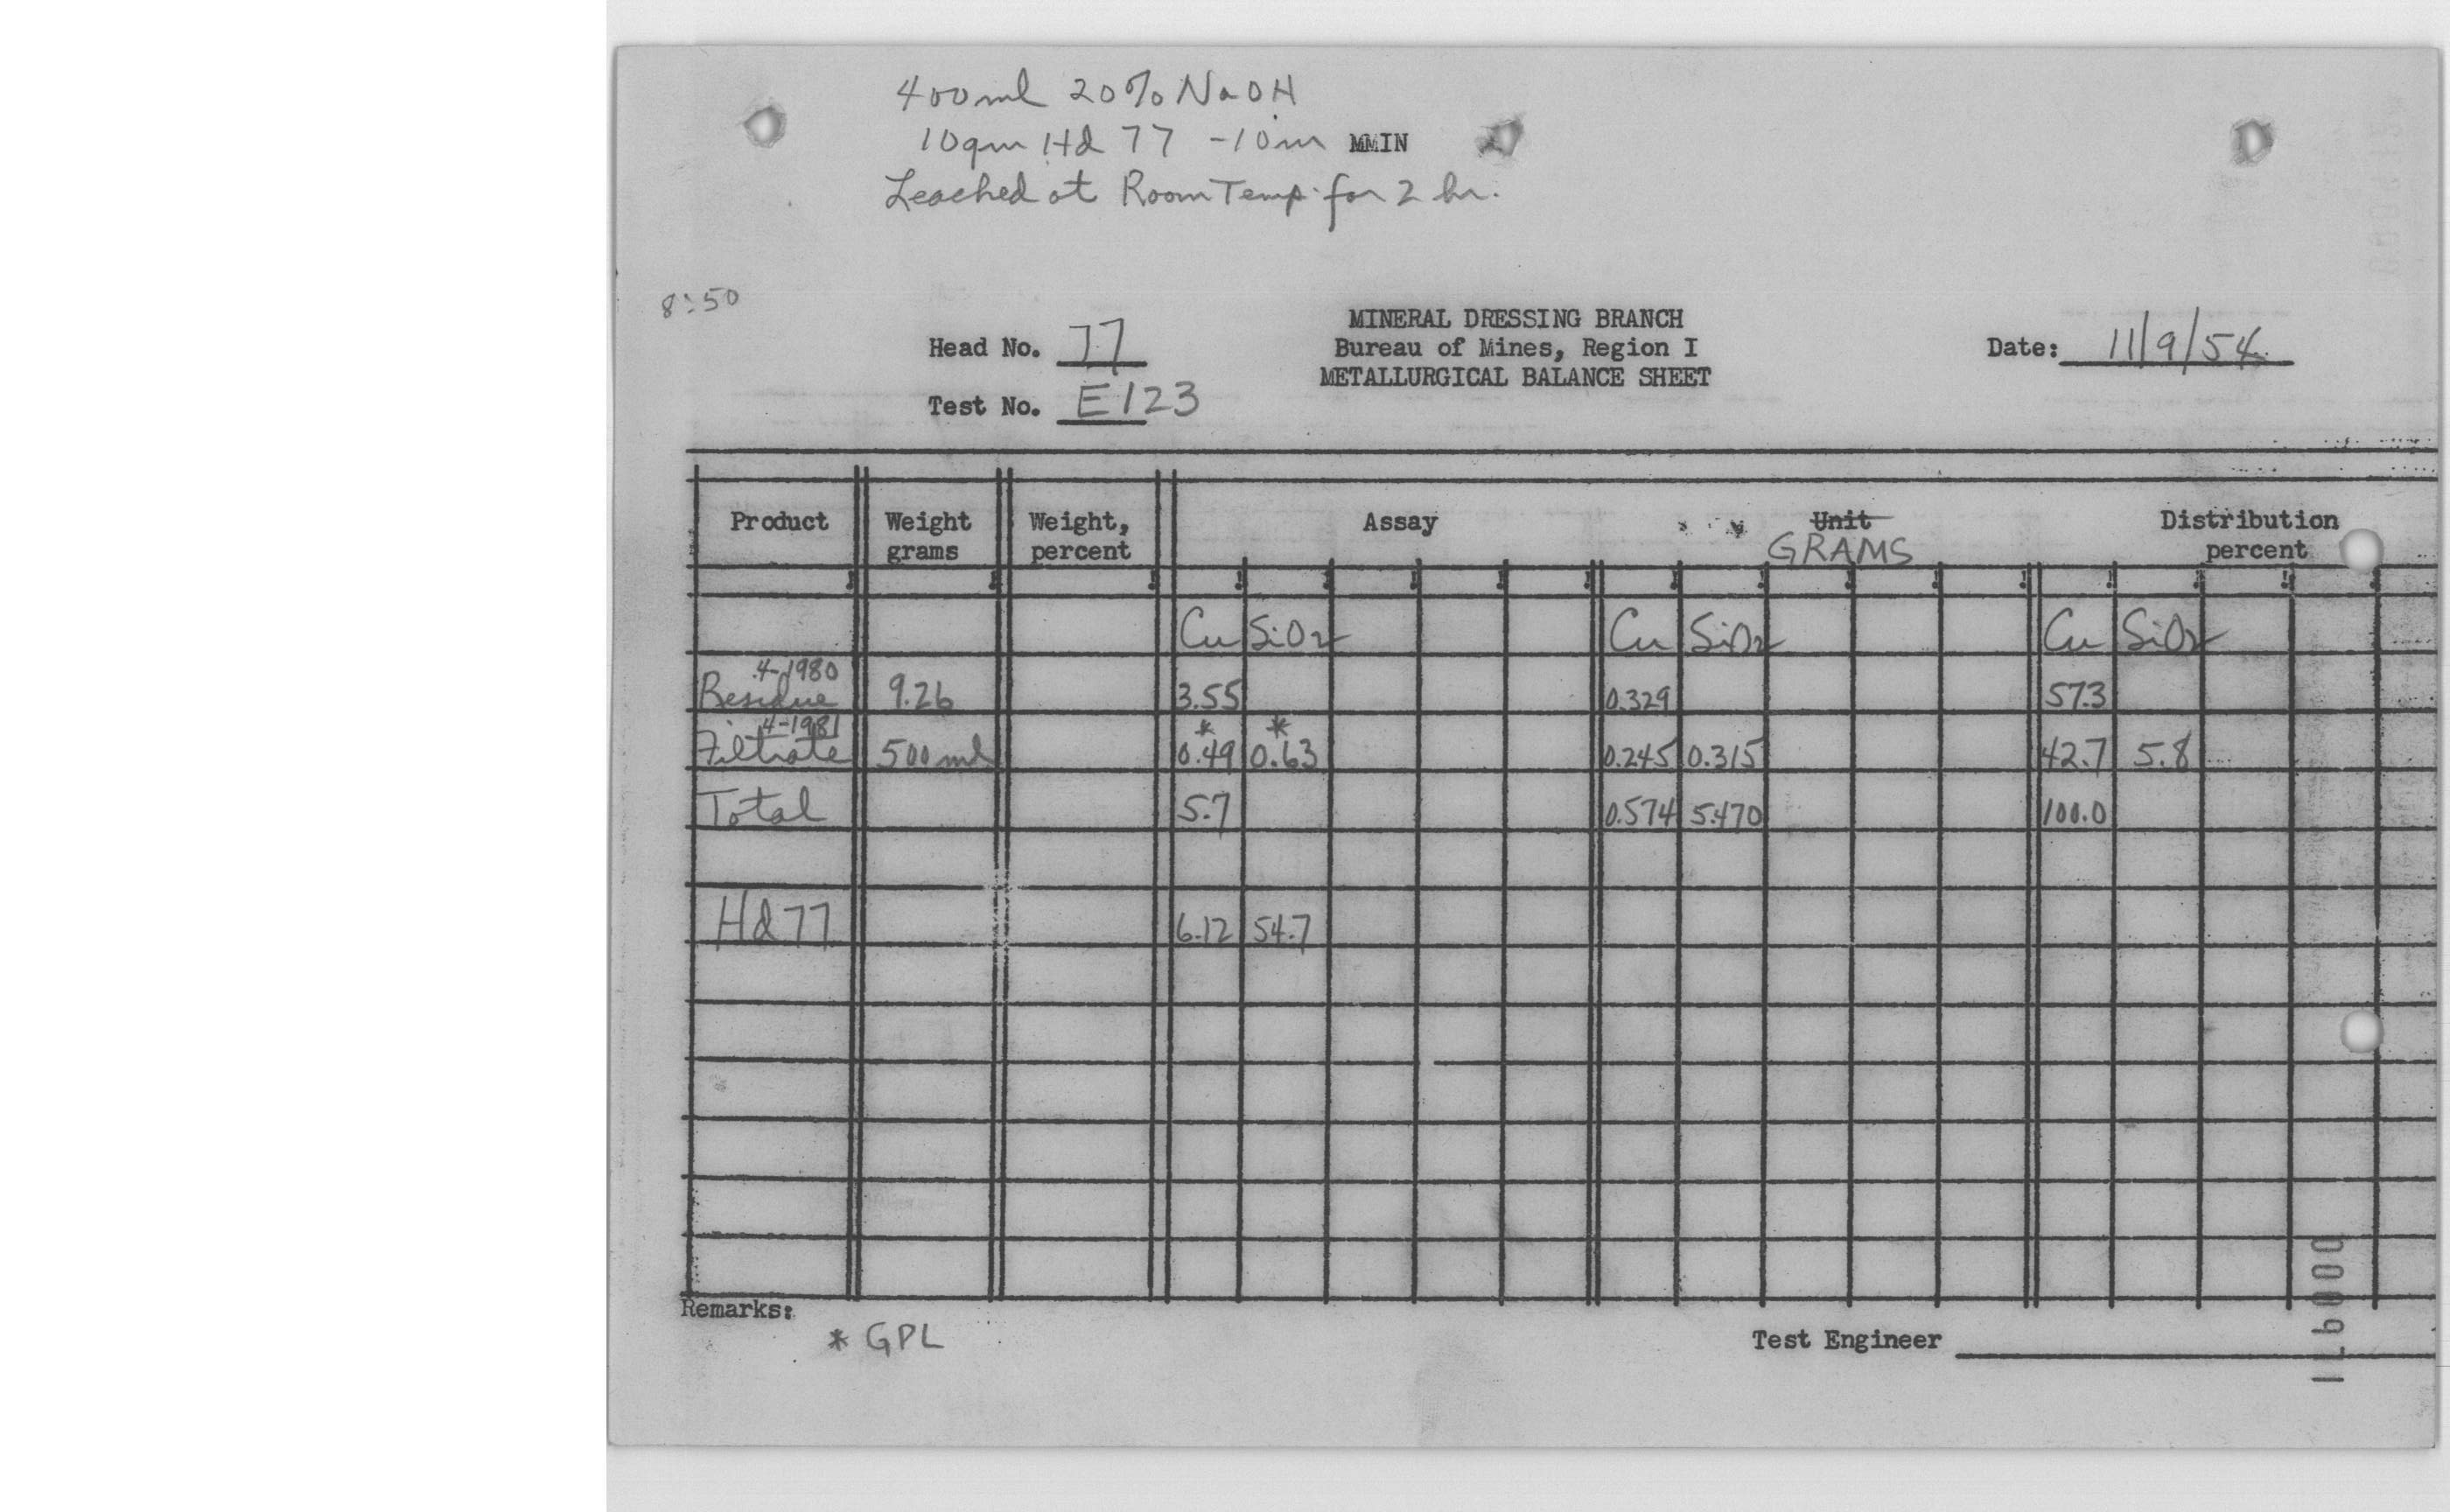 400ml 20% NaOH
10gm Hd 77 -10m MMIN
Leached at Room Temp. for 2 hr.
8:50
MINERAL DRESSING BRANCH
Head No. 77 Bureau of Mines, Region I Date: 11/9/54
METALLURGICAL BALANCE SHEET
Test No. E123
Product Weight grams Weight, percent Assay Unit GRAMS Distribution percent
Cu SiO2 Cu SiO2 Cu SiO2
4-1980
Residue 9.26 3.55 0.329 57.3
4-1981 * *
Filtrate 500ml 0.49 0.63 0.245 0.315 42.7 5.8
Total 5.7 0.574 5.470 100.0
Hd 77 6.12 54.7
Remarks:
* GPL
Test Engineer
000971